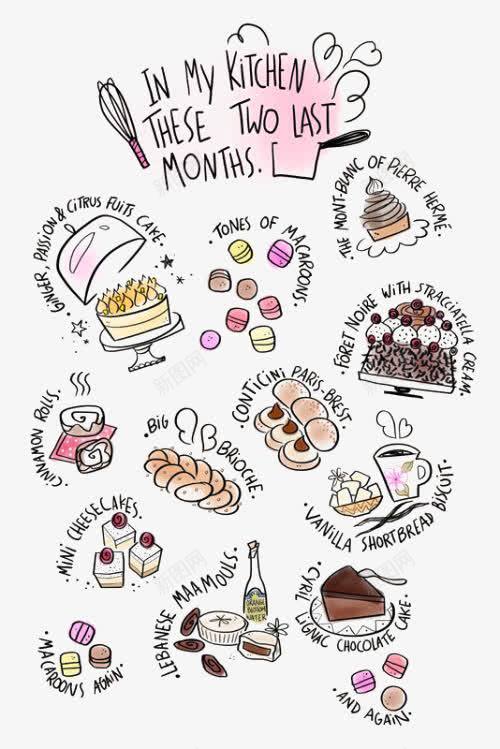 IN MY KITCHEN
THESE TWO LAST
MONTHS.
GINGER, PASSION & CITRUS FUITS CAKE.
TONES OF MACAROONS.
THE MONT-BLANC OF PIERRE HERMÉ.
FÔRET NOIRE WITH STRACCIATELLA CREAM.
CINNAMON ROLLS.
BIG BRIOCHE.
CONTICINI PARIS-BREST.
VANILLA SHORTBREAD BISCUIT.
MINI CHEESECAKES.
LEBANESE MAAMOULS.
ORANGE
BLOSSOM
WATER
CYRIL
LIGNAC CHOCOLATE CAKE.
MACAROONS AGAIN.
AND AGAIN.